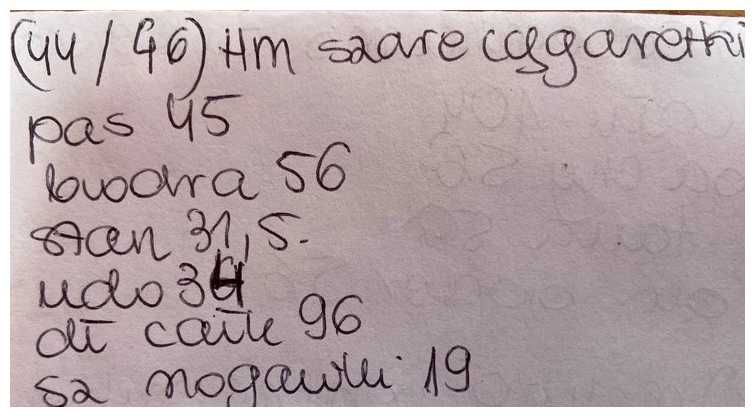 (44/46) Hm szare cygaretki
pas 45
biodra 56
stan 31,5.
udo 34
dł całk 96
sz nogawki 19